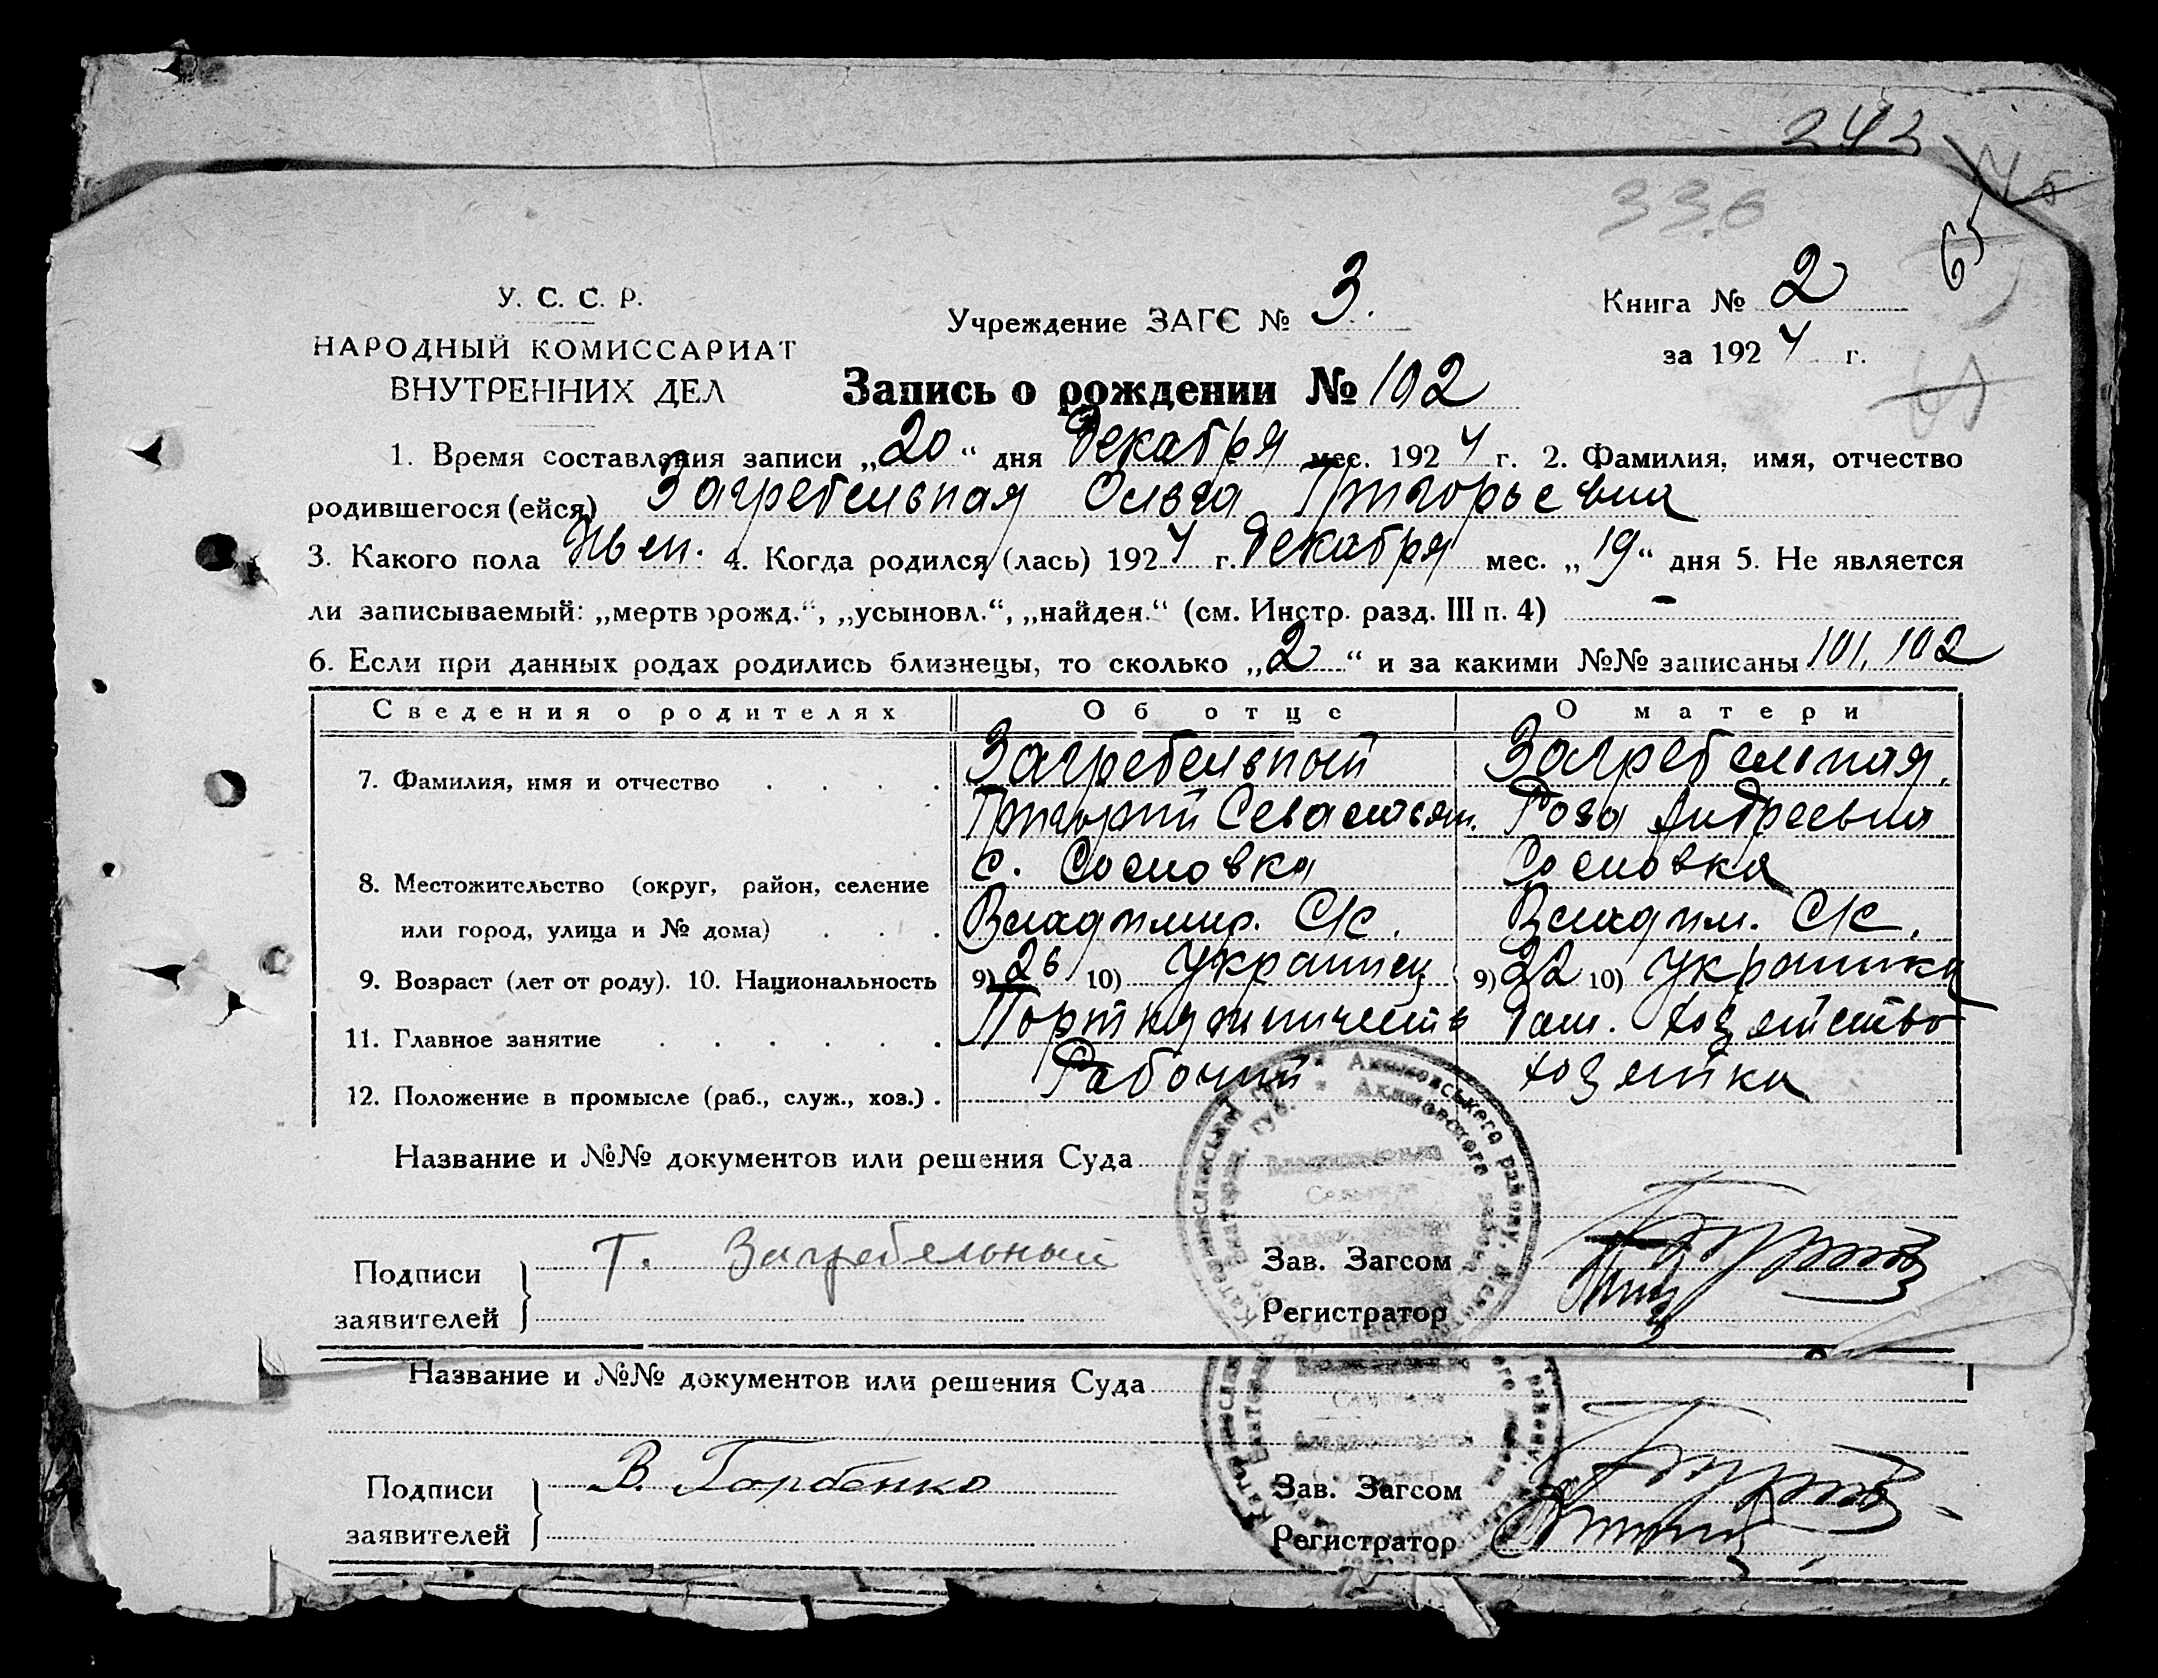 242
336
65
У. С. С. Р.
НАРОДНЫЙ КОМИССАРИАТ
ВНУТРЕННИХ ДЕЛ
Учреждение ЗАГС № 3.
Книга № 2
за 1924 г.
Запись о рождении № 102
1. Время составления записи „20“ дня Декабря мес. 1924 г. 2. Фамилия, имя, отчество
родившегося (ейся) Загребельная Ольга Григорьевна
3. Какого пола Жен. 4. Когда родился (лась) 1924 г. Декабря мес. „19“ дня 5. Не является
ли записываемый: „мертворожд.“, „усыновл.“, „найден.“ (см. Инстр. разд. III п. 4) –
6. Если при данных родах родились близнецы, то сколько „2“ и за какими №№ записаны 101, 102
Сведения о родителях Об отце О матери
7. Фамилия, имя и отчество Загребельный Загребельная
Григорий Севастьян. Роза Андреевна
8. Местожительство (округ, район, селение с. Сосновка Сосновка
или город, улица и № дома) Владимир. С/с. Владим. С/с.
9. Возраст (лет от роду). 10. Национальность 9) 26 10) Украинец 9) 22 10) Украинка
11. Главное занятие Портняжничеств Дом. хозяйство
12. Положение в промысле (раб., служ., хоз.) Рабочий хозяйка
Название и №№ документов или решения Суда
Подписи заявителей Г. Загребельный
Зав. Загсом
Регистратор
Название и №№ документов или решения Суда
Подписи заявителей В. Горбенко
Зав. Загсом
Регистратор